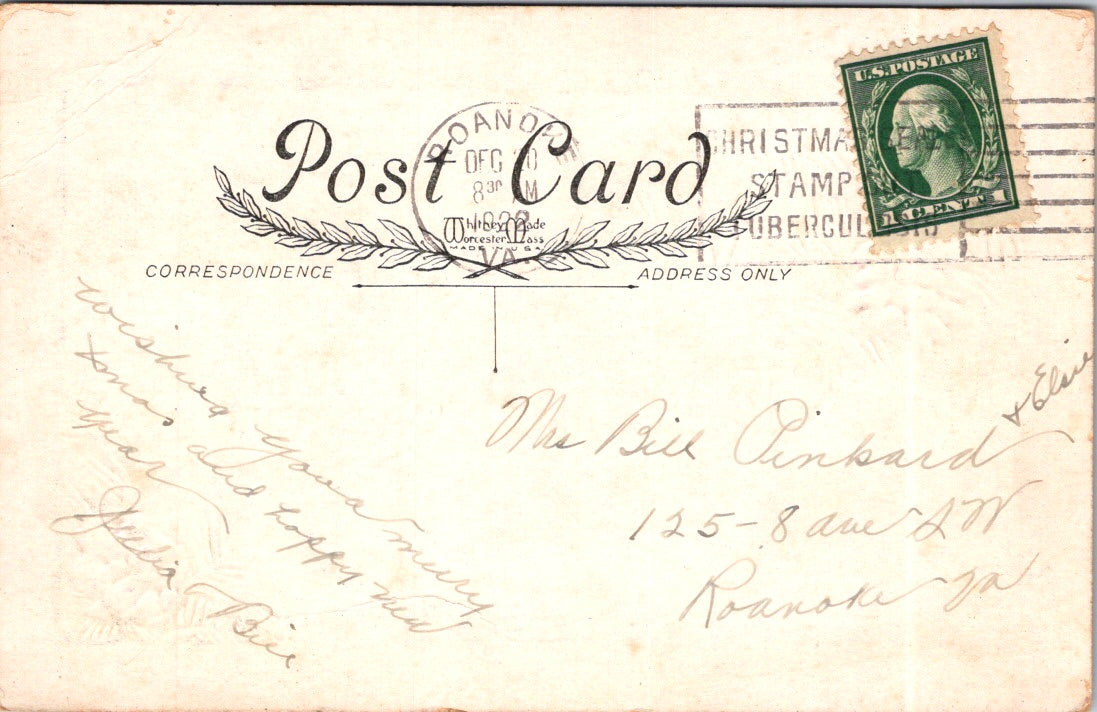 Post Card
ROANOKE
DEC 20
8 30 M
192
VA.
Whitney Made
Worcester, Mass
MADE IN U S A
CHRISTMAS
STAMP
TUBERCUL
U.S. POSTAGE
1 CENT 1
CORRESPONDENCE
ADDRESS ONLY
wishing you a merry
xmas and happy new
year
Julia Bill
Mrs Bill Pinkard
+ Elsie
125-8 ave SW
Roanoke Va